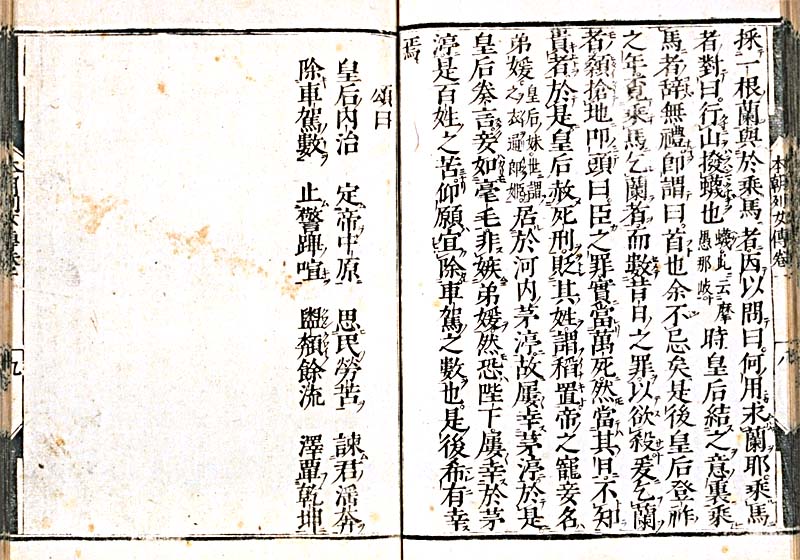 採一根蘭與於乘馬者因以問曰何用求蘭耶乘馬
者對曰行山撥蟻也蟻此云摩愚那岐時皇后結之意裏乘
馬者辞無禮即謂曰首也余不忘矣是後皇后登祚
之年覔乘馬乞蘭者而數昔日之罪以欲殺爰乞蘭
者顙搶地叩頭曰臣之罪實當萬死然當其日不知
貴者於是皇后赦死刑貶其姓謂稻置帝之寵妾名
弟媛皇后妹世謂之衣通郎姬居於河内茅渟故屢幸茅渟於是
皇后奏言妾如毫毛非嫉弟媛然恐陛下屢幸於茅
渟是百姓之苦仰願宜除車駕之數也是後希有幸
焉
頌曰
皇后内治 定帝中原 思民勞苦 諫君淫奔
除車駕數 止警蹕喧 盥頮餘流 澤覃乾坤
本朝列女傳卷
八
九